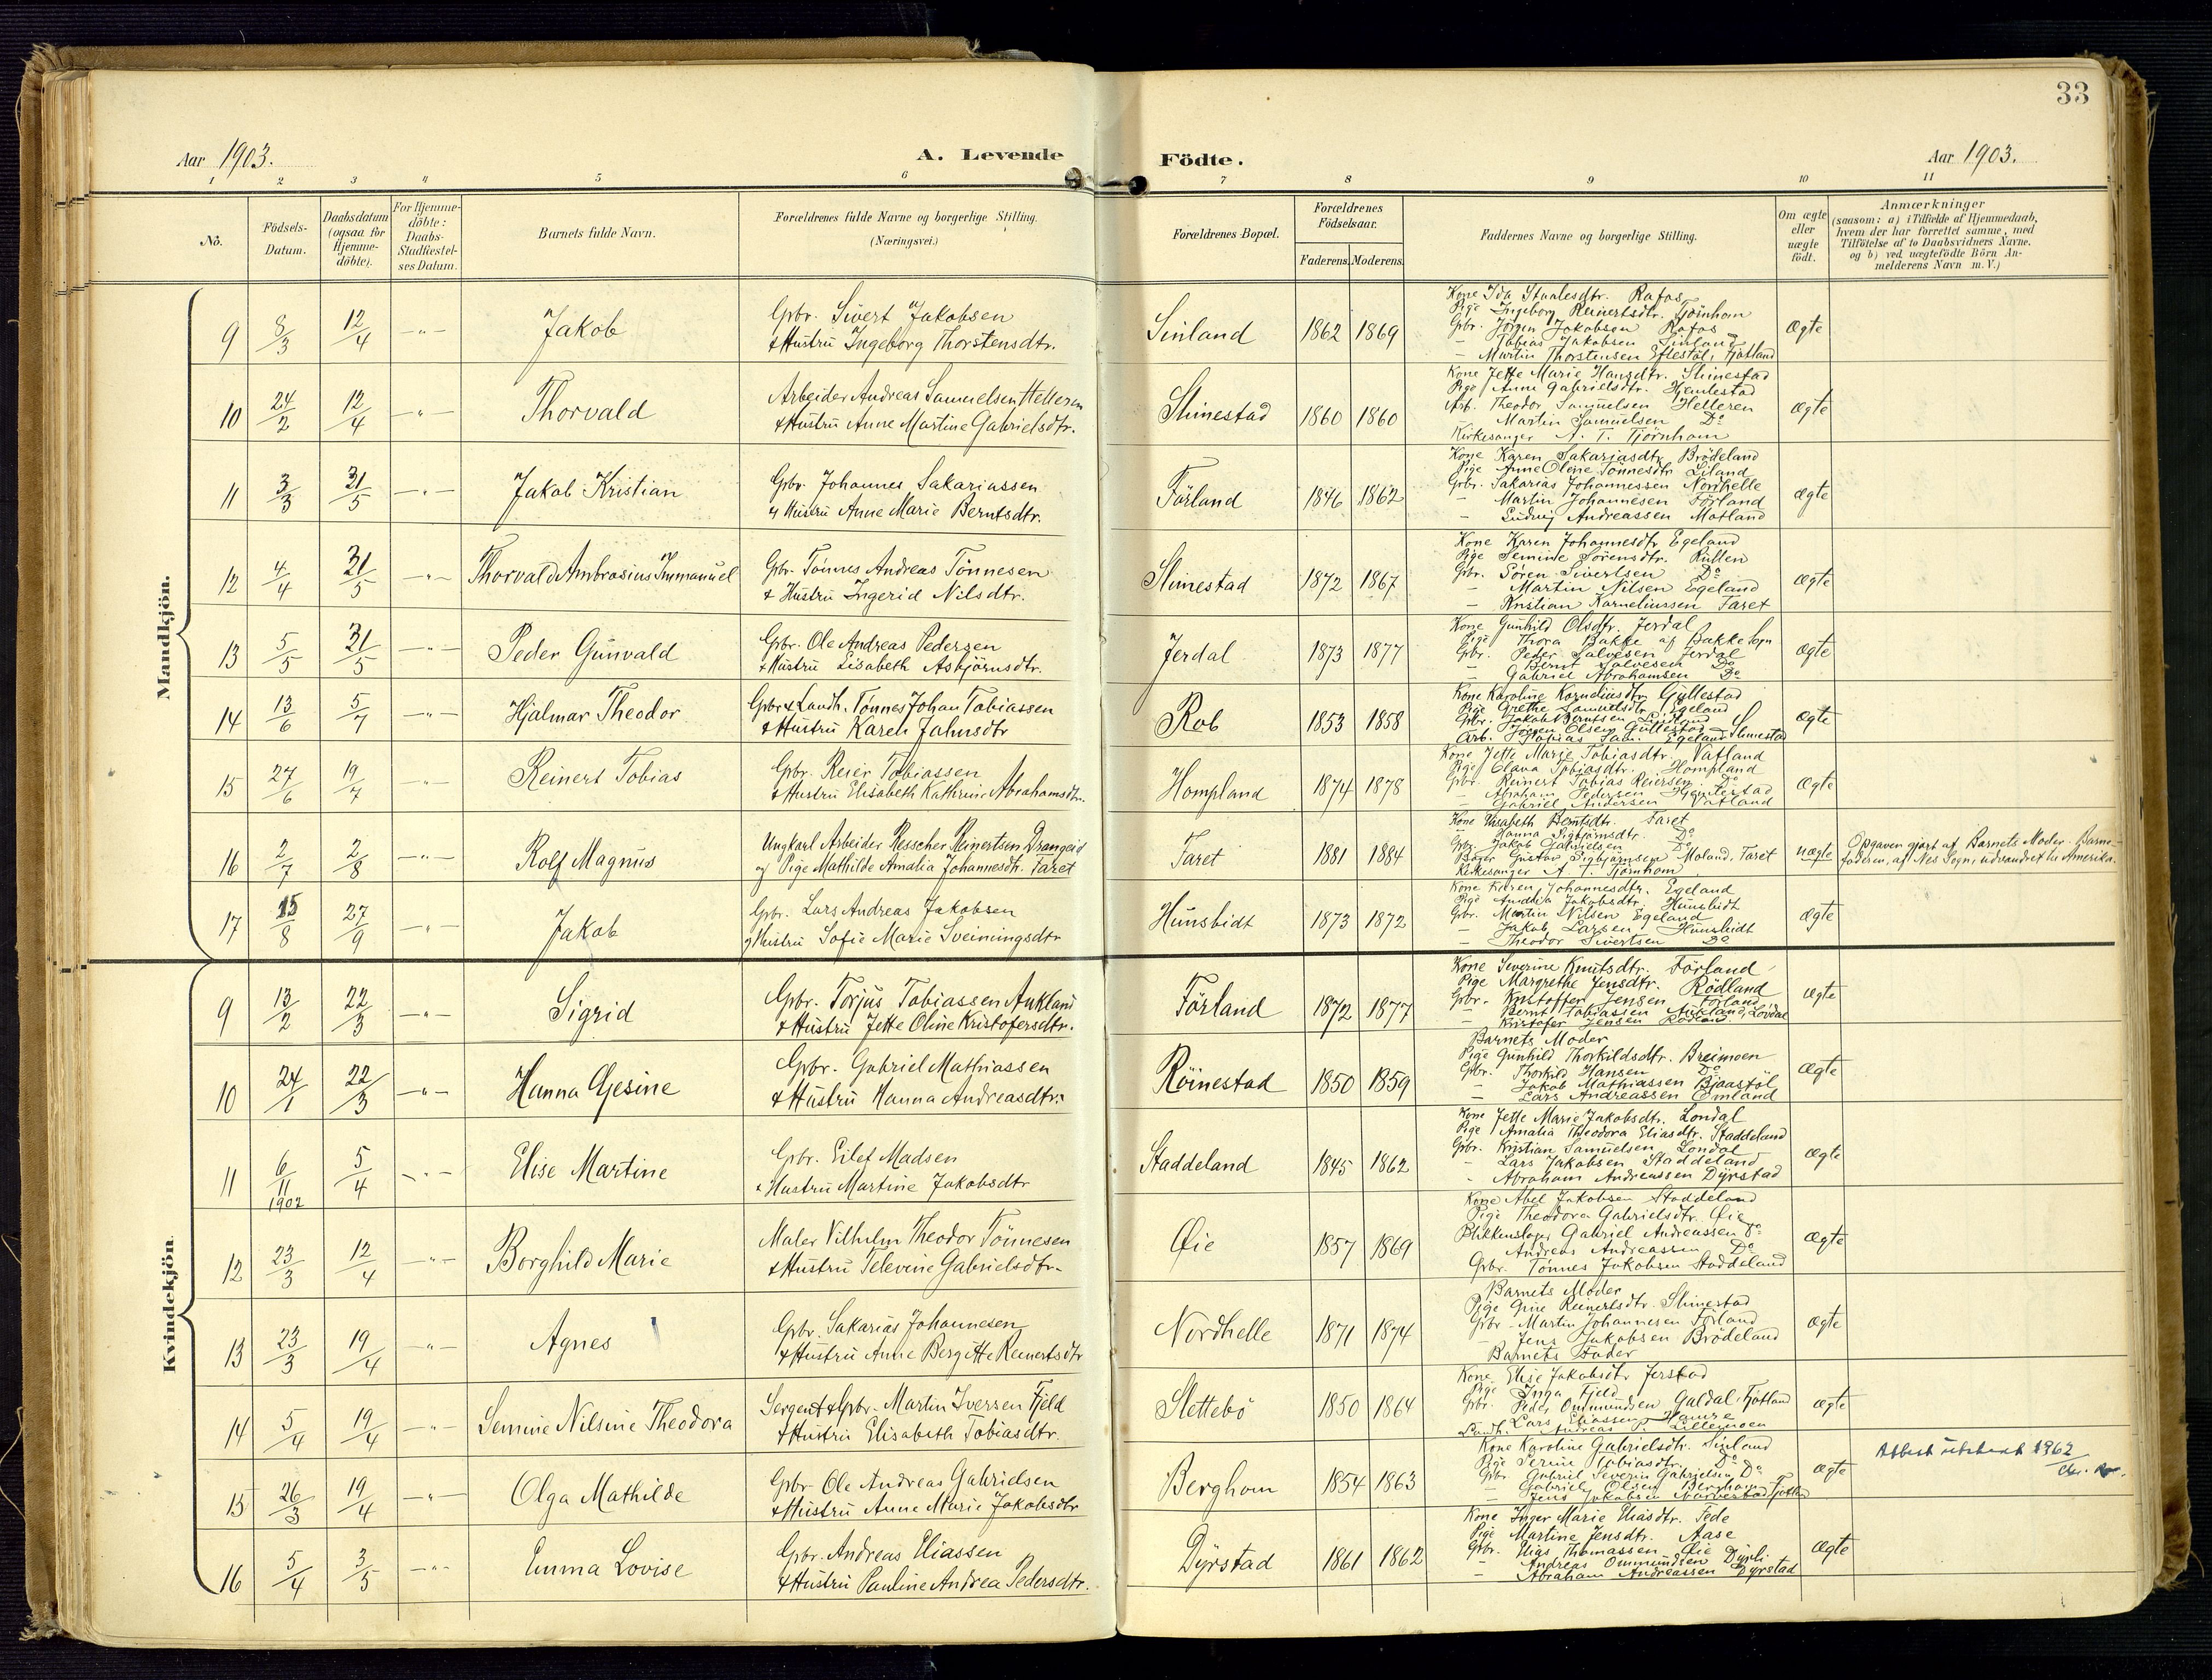 33
Aar 1903.
A. Levende Födte.
Aar 1903.
1 2 3 4 5 6 7 8 9 10 11
No.
Födsels-Datum.
Daabsdatum (ogsaa for Hjemme-döbte).
For Hjemme-döbte: Daabs-Stadfæstel-ses Datum.
Barnets fulde Navn.
Forældrenes fulde Navne og borgerlige Stilling.
(Næringsvei.)
Forældrenes Bopæl.
Forældrenes Födselsaar.
Faderens. Moderens.
Faddernes Navne og borgerlige Stilling.
Om ægte eller uægte födt.
Anmærkninger
(saasom: a) i Tilfælde af Hjemmedaab, hvem der har forrettet samme, med Tilföielse af to Daabsvidners Navne. og b) ved uægtefödte Börn An-melderens Navn m. V.)
Mandkjön.
9 8/3 12/4 —"— Jakob
Gbr. Sivert Jakobsen
& Hustru Ingeborg Thorstensdtr.
Sinland 1862 1869
Kone Ida Staalesdtr. Rafos
Pige Ingeborg Reinertsdtr. Tjörnhom
Gbr. Jörgen Jakobsen Rafos
— Tobias Jakobsen Sinland
— Martin Thorstensen Eftestöl, Fjotland
Ægte
10 24/2 12/4 —"— Thorvald
Arbeider Andreas Samuelsen Helleren
& Hustru Anne Martine Gabrielsdtr.
Slinestad 1860 1860
Kone Jette Marie Hansdtr. Slimestad
Pige Anne Gabrielsdtr. Hamlestad
Arb. Theodor Samuelsen Helleren
Martin Samuelsen Do
Kirkesanger A. T. Tjörnhom
Ægte
11 3/3 31/5 —"— Jakob Kristian
Gbr. Johannes Sakariassen
& Hustru Anne Marie Berntsdtr.
Förland 1846 1862
Kone Karen Sakariasdtr. Brödeland
Pige Anne Oline Tönnesdtr. Liland
Gbr. Sakarias Johannessen Nordhelle
— Martin Johannesen Förland
— Ludvig Andreassen Motland
Ægte
12 4/4 31/5 —"— Thorvald Ambrosius Immanuel
Gbr. Tönnes Andreas Tönnesen
& Hustru Ingerid Nilsdtr.
Slimestad 1872 1867
Kone Karen Johannesdtr. Egeland
Pige Semine Sörensdtr. Rullen
Gbr. Sören Sivertsen Do
— Martin Nilsen Egeland
— Kristian Korneliussen Faret
Ægte
13 5/5 31/5 —"— Peder Gunvald
Gbr. Ole Andreas Pedersen
& Hustru Lisabeth Asbjörnsdtr.
Jerdal 1873 1877
Kone Gunhild Olsdtr. Jerdal
Pige Thora Bakke af Bakke Sogn
Gbr. Peder Salvesen Jerdal
— Bernt Salvesen Do
— Gabriel Abrahamsen Do
Ægte
14 13/6 5/7 —"— Hjalmar Theodor
Gbr. & Landh. Tönnes Johan Tobiassen
& Hustru Karen Jahnsdtr
Rob 1853 1858
Kone Karoline Korneliusdtr. Gyllestad
Pige Grethe Samuelsdtr. Egeland
Gbr. Jakob Berntsen
Jörgen Olsen Gullestad
Arb. Tobias Sam. Egeland, Slimestad
Ægte
15 27/6 19/7 —"— Reinert Tobias
Gbr. Reier Tobiassen
& Hustru Elisabeth Kathrine Abrahamsdtr.
Hompland 1874 1878
Kone Jette Marie Tobiasdtr. Vatland
Pige Olava Tobiasdtr. Hompland
Gbr. Reinert Tobias Reiersen Do
— Abraham Pedersen Hamlestad
— Gabriel Andersen Vatland
Ægte
16 2/7 2/8 —"— Rolf Magnus
Ungkarl Arbeider Resscher Reinertsen Drangeid
og Pige Mathilde Amalia Johannesdtr. Faret
Faret 1881 1884
Kone Elisabeth Berntsdtr. Faret
— Hanna Sigbjörnsdtr. Do
Gbr. Jakob Gabrielsen Do
Bager Gustav Sigbjörnsen Moland, Faret
Kirkesanger A. T. Tjörnhom
uægte
Opgaven gjort af Barnets Moder. Barne-
faderen, af Nes Sogn, udvandret til Amerika.
17 15/8 27/9 —"— Jakob
Gbr. Lars Andreas Jakobsen
& Hustru Sofie Marie Sveinungsdtr
Hunsbidt 1873 1872
Kone Karen Johannesdtr. Egeland
Pige Amalia Jakobsdtr. Hunsbidt
Gbr. Martin Nilsen Egeland
— Jakob Larsen Hunsbidt
— Theodor Sivertsen Do
Ægte
Kvindekjön
9 13/2 22/3 —"— Sigrid
Gbr. Torjus Tobiassen Aukland
& Hustru Jette Oline Kristofersdtr.
Förland 1872 1877
Kone Severine Knutsdtr. Förland
Pige Margrethe Jensdtr. Rödland
Gbr. Kristoffer Jensen Förland
— Bernt Tobiassen Aukland, Lövdal
— Kristofer Jensen Rödland
Ægte
10 24/1 22/3 —"— Hanna Gesine
Gbr. Gabriel Mathiassen
& Hustru Hanna Andreasdtr.
Röinestad 1850 1859
Barnets Moder
Pige Gunhild Thorkildsdtr. Breimoen
Gbr. Thorkild Hansen Do
— Jakob Mathiassen Bjaastöl
— Lars Andreassen Omland
Ægte
11 6/11 1902 5/4 —"— Elise Martine
Gbr. Eilef Madsen
& Hustru Martine Jakobsdtr
Staddeland 1845 1862
Kone Jette Marie Jakobsdtr. Londal
Pige Amalia Theodora Eliasdtr. Staddeland
Gbr. Kristian Samuelsen Londal
— Lars Jakobsen Staddeland
— Abraham Andreassen Dyrstad
Ægte
12 23/3 12/4 —"— Borghild Marie
Maler Vilhelm Theodor Tönnesen
& Hustru Televine Gabrielsdtr.
Øie 1857 1869
Kone Abel Jakobsen Staddeland
Pige Theodora Gabrielsdtr. Øie
Blikkenslager Gabriel Andreassen Do
Andreas Andreassen Do
Gbr. Tönnes Jakobsen Staddeland
Ægte
13 23/3 19/4 —"— Agnes
Gbr. Sakarias Johannesen
& Hustru Anne Bergitte Reinertsdtr
Nordhelle 1871 1874
Barnets Moder
Pige Gine Reinertsdtr. Slimestad
Gbr. Martin Johannesen Förland
— Jens Jakobsen Brödeland
Barnets Fader
Ægte
14 5/4 19/4 —"— Semine Nilsine Theodora
Sergent & Gbr. Martin Iversen Fjeld
& Hustru Elisabeth Tobiasdtr.
Slettebö 1850 1864
Kone Elise Jakobsdtr Jerstad
Pige Inga Fjeld
Gbr. Peder Ommundsen Galdal, Fjotland
— Lars Eliassen Hamre
Landh. Andreas P. Lillemoen
Ægte
15 26/3 19/4 —"— Olga Mathilde
Gbr. Ole Andreas Gabrielsen
& Hustru Anne Marie Jakobsdtr
Berghom 1854 1863
Kone Karoline Gabrielsdtr. Sinland
Pige Serine Tobiasdtr. Do
Gbr. Gabriel Severin Gabrielsen Do
— Gabriel Olsen Berghom
— Jens Jakobsen Narvestad, Fjotland
Ægte
Attest utskrevet 1962
16 5/4 3/5 —"— Emma Lovise
Gbr. Andreas Eliassen
& Hustru Pauline Andrea Pedersdtr.
Dyrstad 1861 1862
Kone Inger Marie Eliasdtr. Fede
Pige Martine Jensdtr. Aase
Gbr. Elias Thomassen Øie
— Andreas Ommundsen Dyrli
— Abraham Andreassen Dyrstad
Ægte